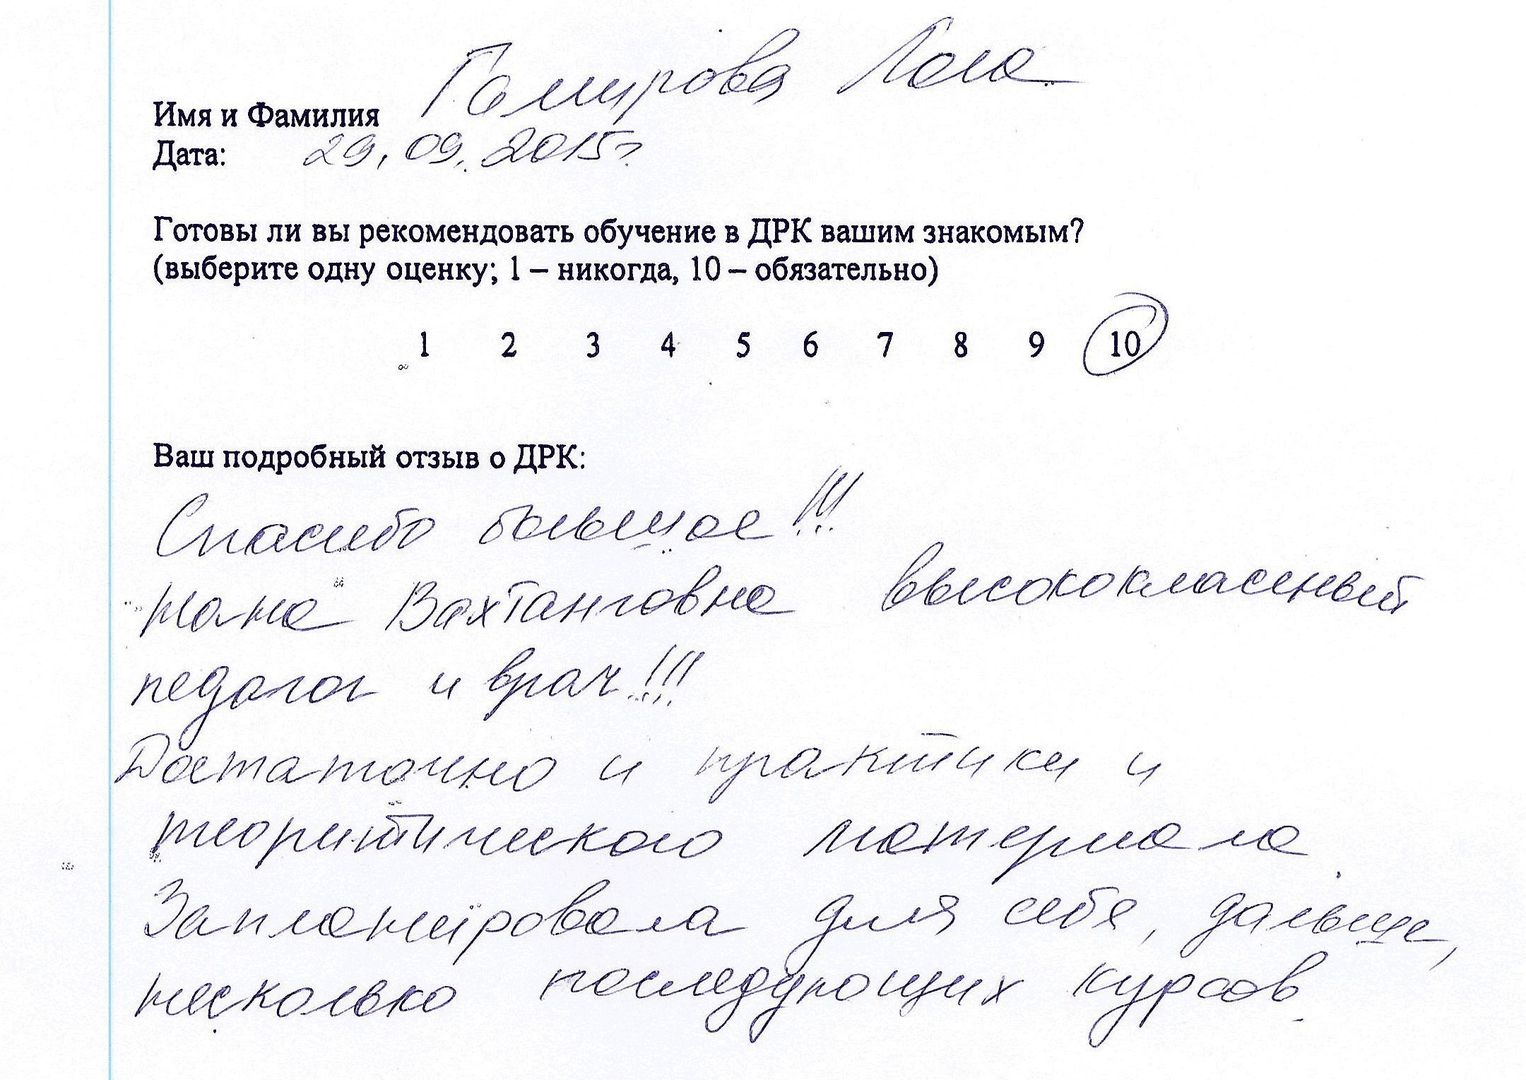 Имя и Фамилия Гамирова Лола
Дата: 29.09.2015г.
Готовы ли вы рекомендовать обучение в ДРК вашим знакомым?
(выберите одну оценку; 1 – никогда, 10 – обязательно)
1 2 3 4 5 6 7 8 9 10
Ваш подробный отзыв о ДРК:
Спасибо большое!!!
Нана Вахтанговна высококлассный
педагог и врач!!!
Достаточно и практики и
теоритического материала.
Запланировала для себя, дальше,
несколько последующих курсов.